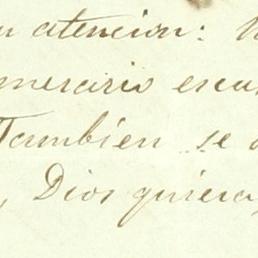 su atencion: U
merario esca
Tambien se a
, Dios quiera,